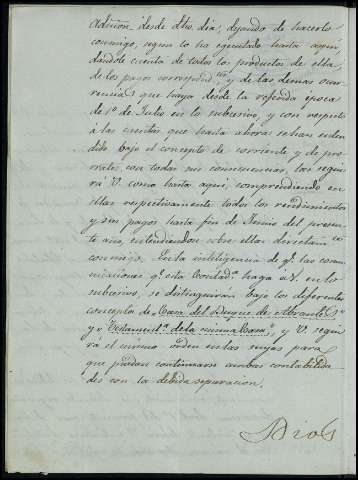 admón. desde dho. dia, dejando de hacerlo
conmigo, segun lo ha egecutado hasta aqui
dándole cuenta de todos los productos de ella,
de los pagos correspond.tes y de las demas ocur
rencias que haya desde la referida época
de 1º de Julio en lo subcesivo, y con respecto
á las cuentas que hasta ahora se han enten
dido bajo el concepto de corriente y de pro
rrateo, con todas sus consecuencias, las segui
rá V. como hasta aqui, comprendiendo en
ellas respectivamente todos los rendimientos
y sus pagos hasta fin de Junio del presen
te año, entendiendose sobre ellas directam.te
conmigo. En la inteligencia de q.e las comu
nicaciones q.e esta Contad.a haga á V. en lo
subcesivo, se distinguirán bajo los diferentes
conceptos de Casa del Duque de Abrantes
y Testament.a de la misma Casa, y V. segui
rá el mismo orden en las suyas para
que puedan continuarse ambas contabilida
des con la debida separacion.
Dios